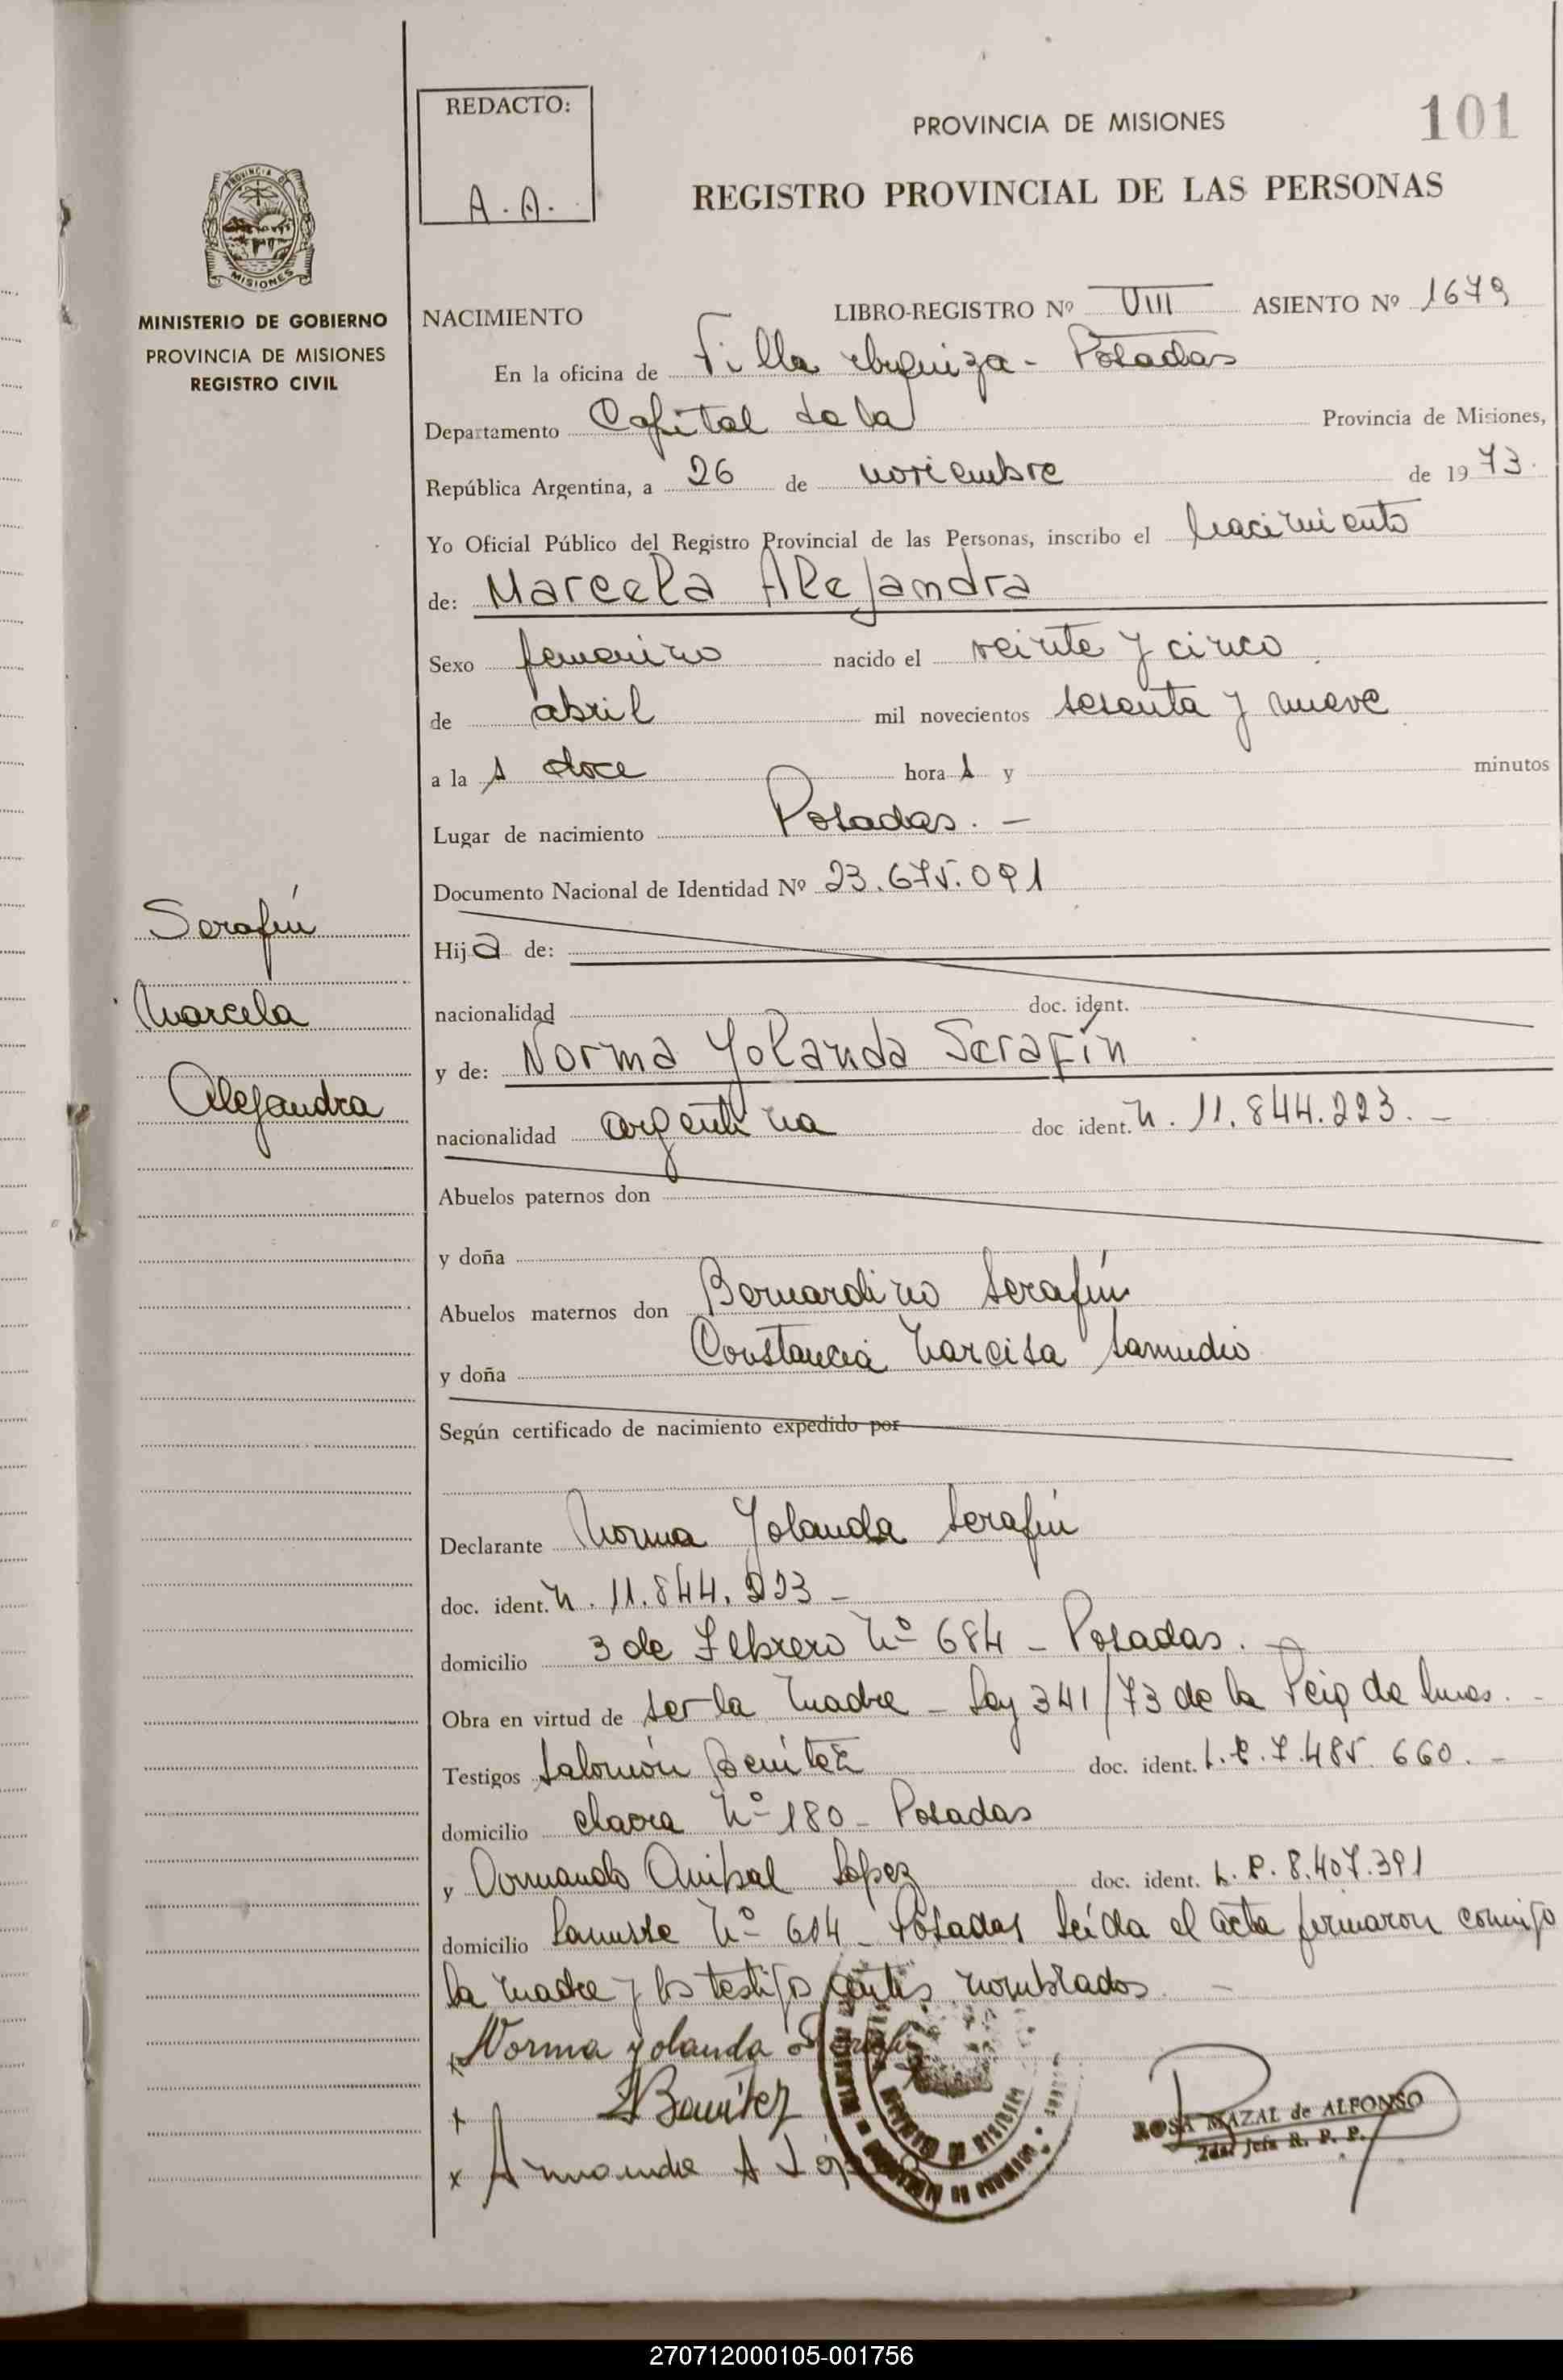 REDACTO:
A. A.
PROVINCIA DE MISIONES
101
REGISTRO PROVINCIAL DE LAS PERSONAS
PROVINCIA DE
MISIONES
MINISTERIO DE GOBIERNO
PROVINCIA DE MISIONES
REGISTRO CIVIL
NACIMIENTO LIBRO-REGISTRO Nº VIII ASIENTO Nº 1679
En la oficina de Villa Urquiza - Posadas
Departamento Capital de la Provincia de Misiones,
República Argentina, a 26 de noviembre de 1973.
Yo Oficial Público del Registro Provincial de las Personas, inscribo el nacimiento
de: Marcela Alejandra
Sexo femenino nacido el veinte y cinco
de abril mil novecientos sesenta y nueve
a la s doce hora s y minutos
Lugar de nacimiento Posadas. -
Documento Nacional de Identidad Nº 23.675.091
Hija de:
nacionalidad doc. ident.
y de: Norma Yolanda Serafín
nacionalidad argentina doc ident. N. 11.844.223. -
Abuelos paternos don
y doña
Abuelos maternos don Bernardino Serafín
y doña Constancia Narcisa Samudio
Según certificado de nacimiento expedido por
Declarante Norma Yolanda Serafín
doc. ident. N. 11.844.223 -
domicilio 3 de Febrero Nº 684 - Posadas. -
Obra en virtud de ser la madre - Ley 341/73 de la
Testigos Salomón Benítez doc. ident. L.E. 7.485.660. -
domicilio chacra Nº 180 - Posadas
y Armando Anibal López doc. ident. L.E. 8.407.391
domicilio Lanusse Nº 604 - Posadas leída el acta firmaron conmigo
la madre y los testigos antes nombrados. -
x Norma Yolanda Serafín
x S Benítez
x Armando A López
ROSA MAZAL de ALFONSO
2da. Jefa R. P. P.
Serafín
Marcela
Alejandra
270712000105-001756